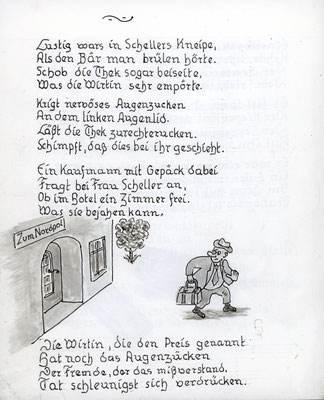 Lustig wars in Schellers Kneipe,
Als den Bär man brülen hörte.
Schob die Thek sogar beiseite,
Was die Wirtin sehr empörte.
Krigt nervöses Augenzucken
An dem linken Augenlid.
Läßt die Thek zurechterucken.
Schimpft, daß dies bei ihr geschieht.
Ein Kaufmann mit Gepäck dabei
Fragt bei Frau Scheller an,
Ob im Hotel ein Zimmer frei.
Was sie bejahen kann.
Zum Nordpol
Die Wirtin, die den Preis genannt
Hat noch das Augenzücken
Der Fremde, der das mißverstand.
Tat schleunigst sich verdrücken.